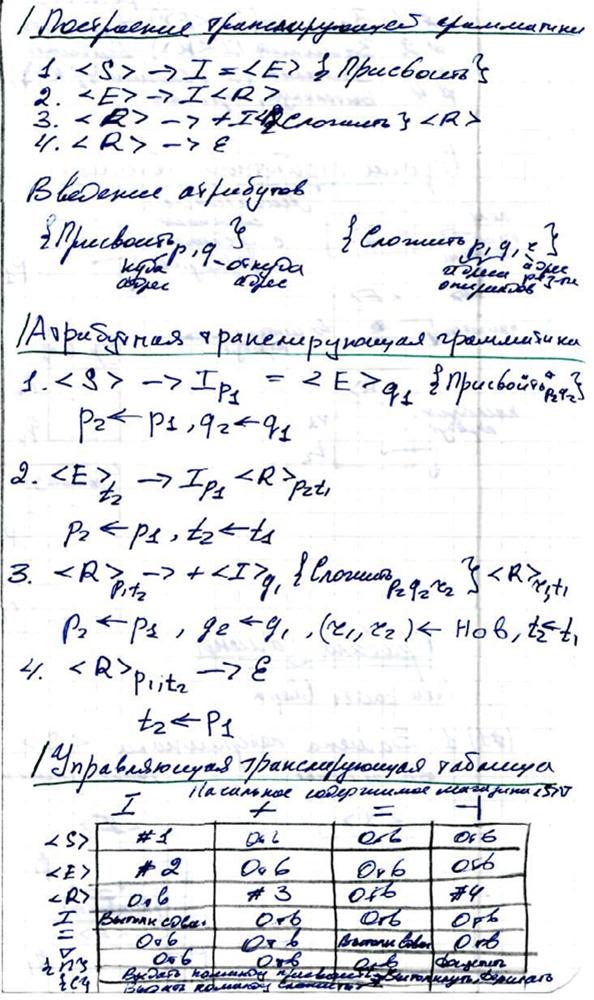 Построение транслирующей грамматики
1. <S> → I = <E> {Присвоить}
2. <E> → I <R>
3. <R> → + I {Сложить} <R>
4. <R> → ε
Введение атрибутов
{Присвоить p, q} {Сложить p, q, r}
куда откуда адреса адрес
адрес адрес операндов рез-та
Атрибутная транслирующая грамматика
1. <S> → I p1 = <E> q1 {Присвоить p2 q2}
p2 ← p1, q2 ← q1
2. <E> t2 → I p1 <R> p2 t1
p2 ← p1, t2 ← t1
3. <R> p1 t2 → + <I> q1 {Сложить p2 q2 r2} <R> r1, t1
p2 ← p1, q2 ← q1, (r1, r2) ← Нов, t2 ← t1
4. <R> p1, t2 → ε
t2 ← p1
Управляющая транслирующая таблица
Начальное содержимое магазина <S>∇
I + = ⊣
<S> #1 Отв Отв Отв
<E> #2 Отв Отв Отв
<R> Отв #3 Отв #4
I Отв Отв Отв
= Отв Отв Отв
∇ Отв Отв Отв Допустить
{П} Выдать команду Вытолкнуть держать
{С} Выдать команду сложить